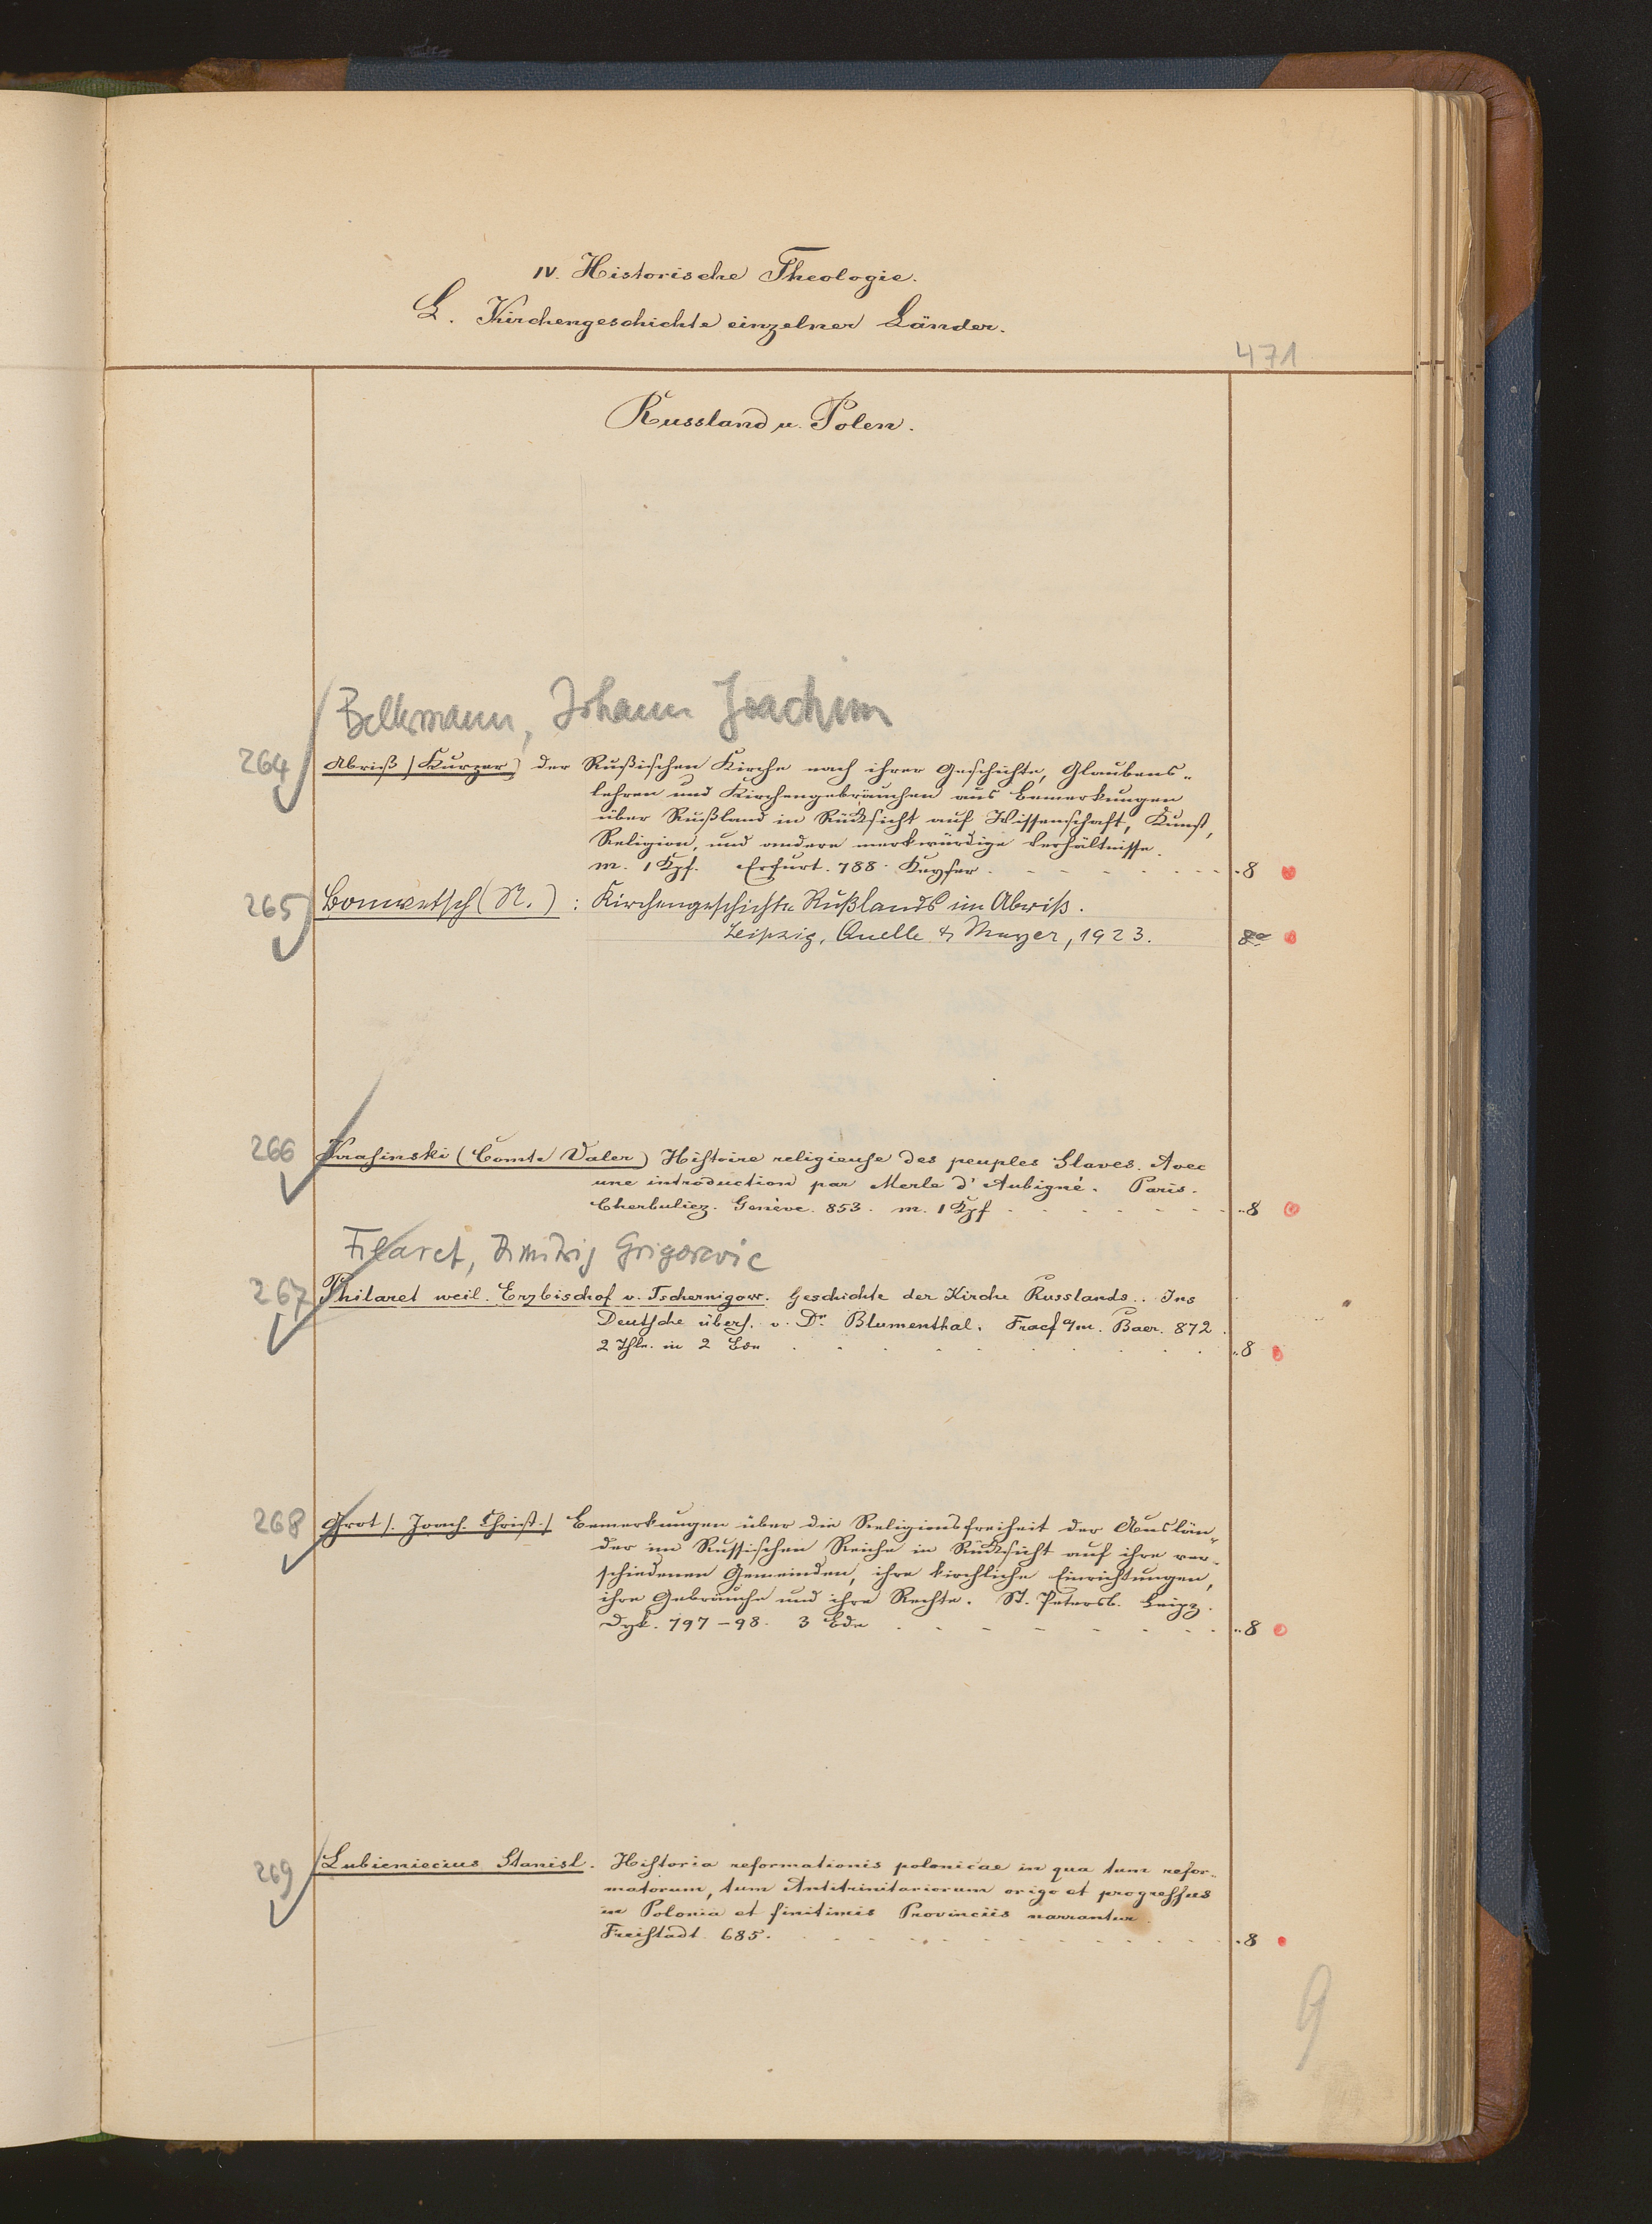 IV. Historische Theologie.
L. Kirchengeschichte einzelner Länder.
471
Russland u. Polen.
Bellermann, Johann Joachim
264 Abriß (Kurzer) der Rußischen Kirche nach ihrer Geschichte, Glaubens-
lehren und Kirchengebräuchen aus Bemerkungen
über Rußland in Rücksicht auf Wissenschaft, Kunst,
Religion, und andere merkwürdige Verhältnisse.
m. 1 Kpf. Erfurt. 788. Keyser. 8
265 Bonwetsch (N.): Kirchengeschichte Rußlands im Abriß.
Leipzig, Quelle & Meyer, 1923. 8°
266 Krasinski (Comte Valer) Histoire religieuse des peuples Slaves. Avec
une introduction par Merle d'Aubigné. Paris.
Cherbuliez. Genève. 853. m. 1 Kpf 8
Filaret, Dmitrij Grigorevic
267 Philaret weil. Erzbischof v. Tschernigow. Geschichte der Kirche Russlands. Ins
Deutsche übers. v. Dr. Blumenthal. Fracf a/m. Baer. 872.
2 Thle. in 2 Bdn 8
268 Grot (Joach. Christ.) Bemerkungen über die Religionsfreiheit der Auslän-
der im Russischen Reiche in Rücksicht auf ihre ver-
schiedenen Gemeinden, ihre kirchliche Einrichtungen,
ihre Gebräuche und ihre Rechte. St. Petersb. Leipz.
Dyk. 797-98. 3 Bde 8
269 Lubieniecius Stanisl. Historia reformationis polonicae in qua tum refor-
matorum, tum Antitrinitariorum origo et progressus
in Polonia et finitimis Provinciis narrantur.
Freistadt. 685. 8
9